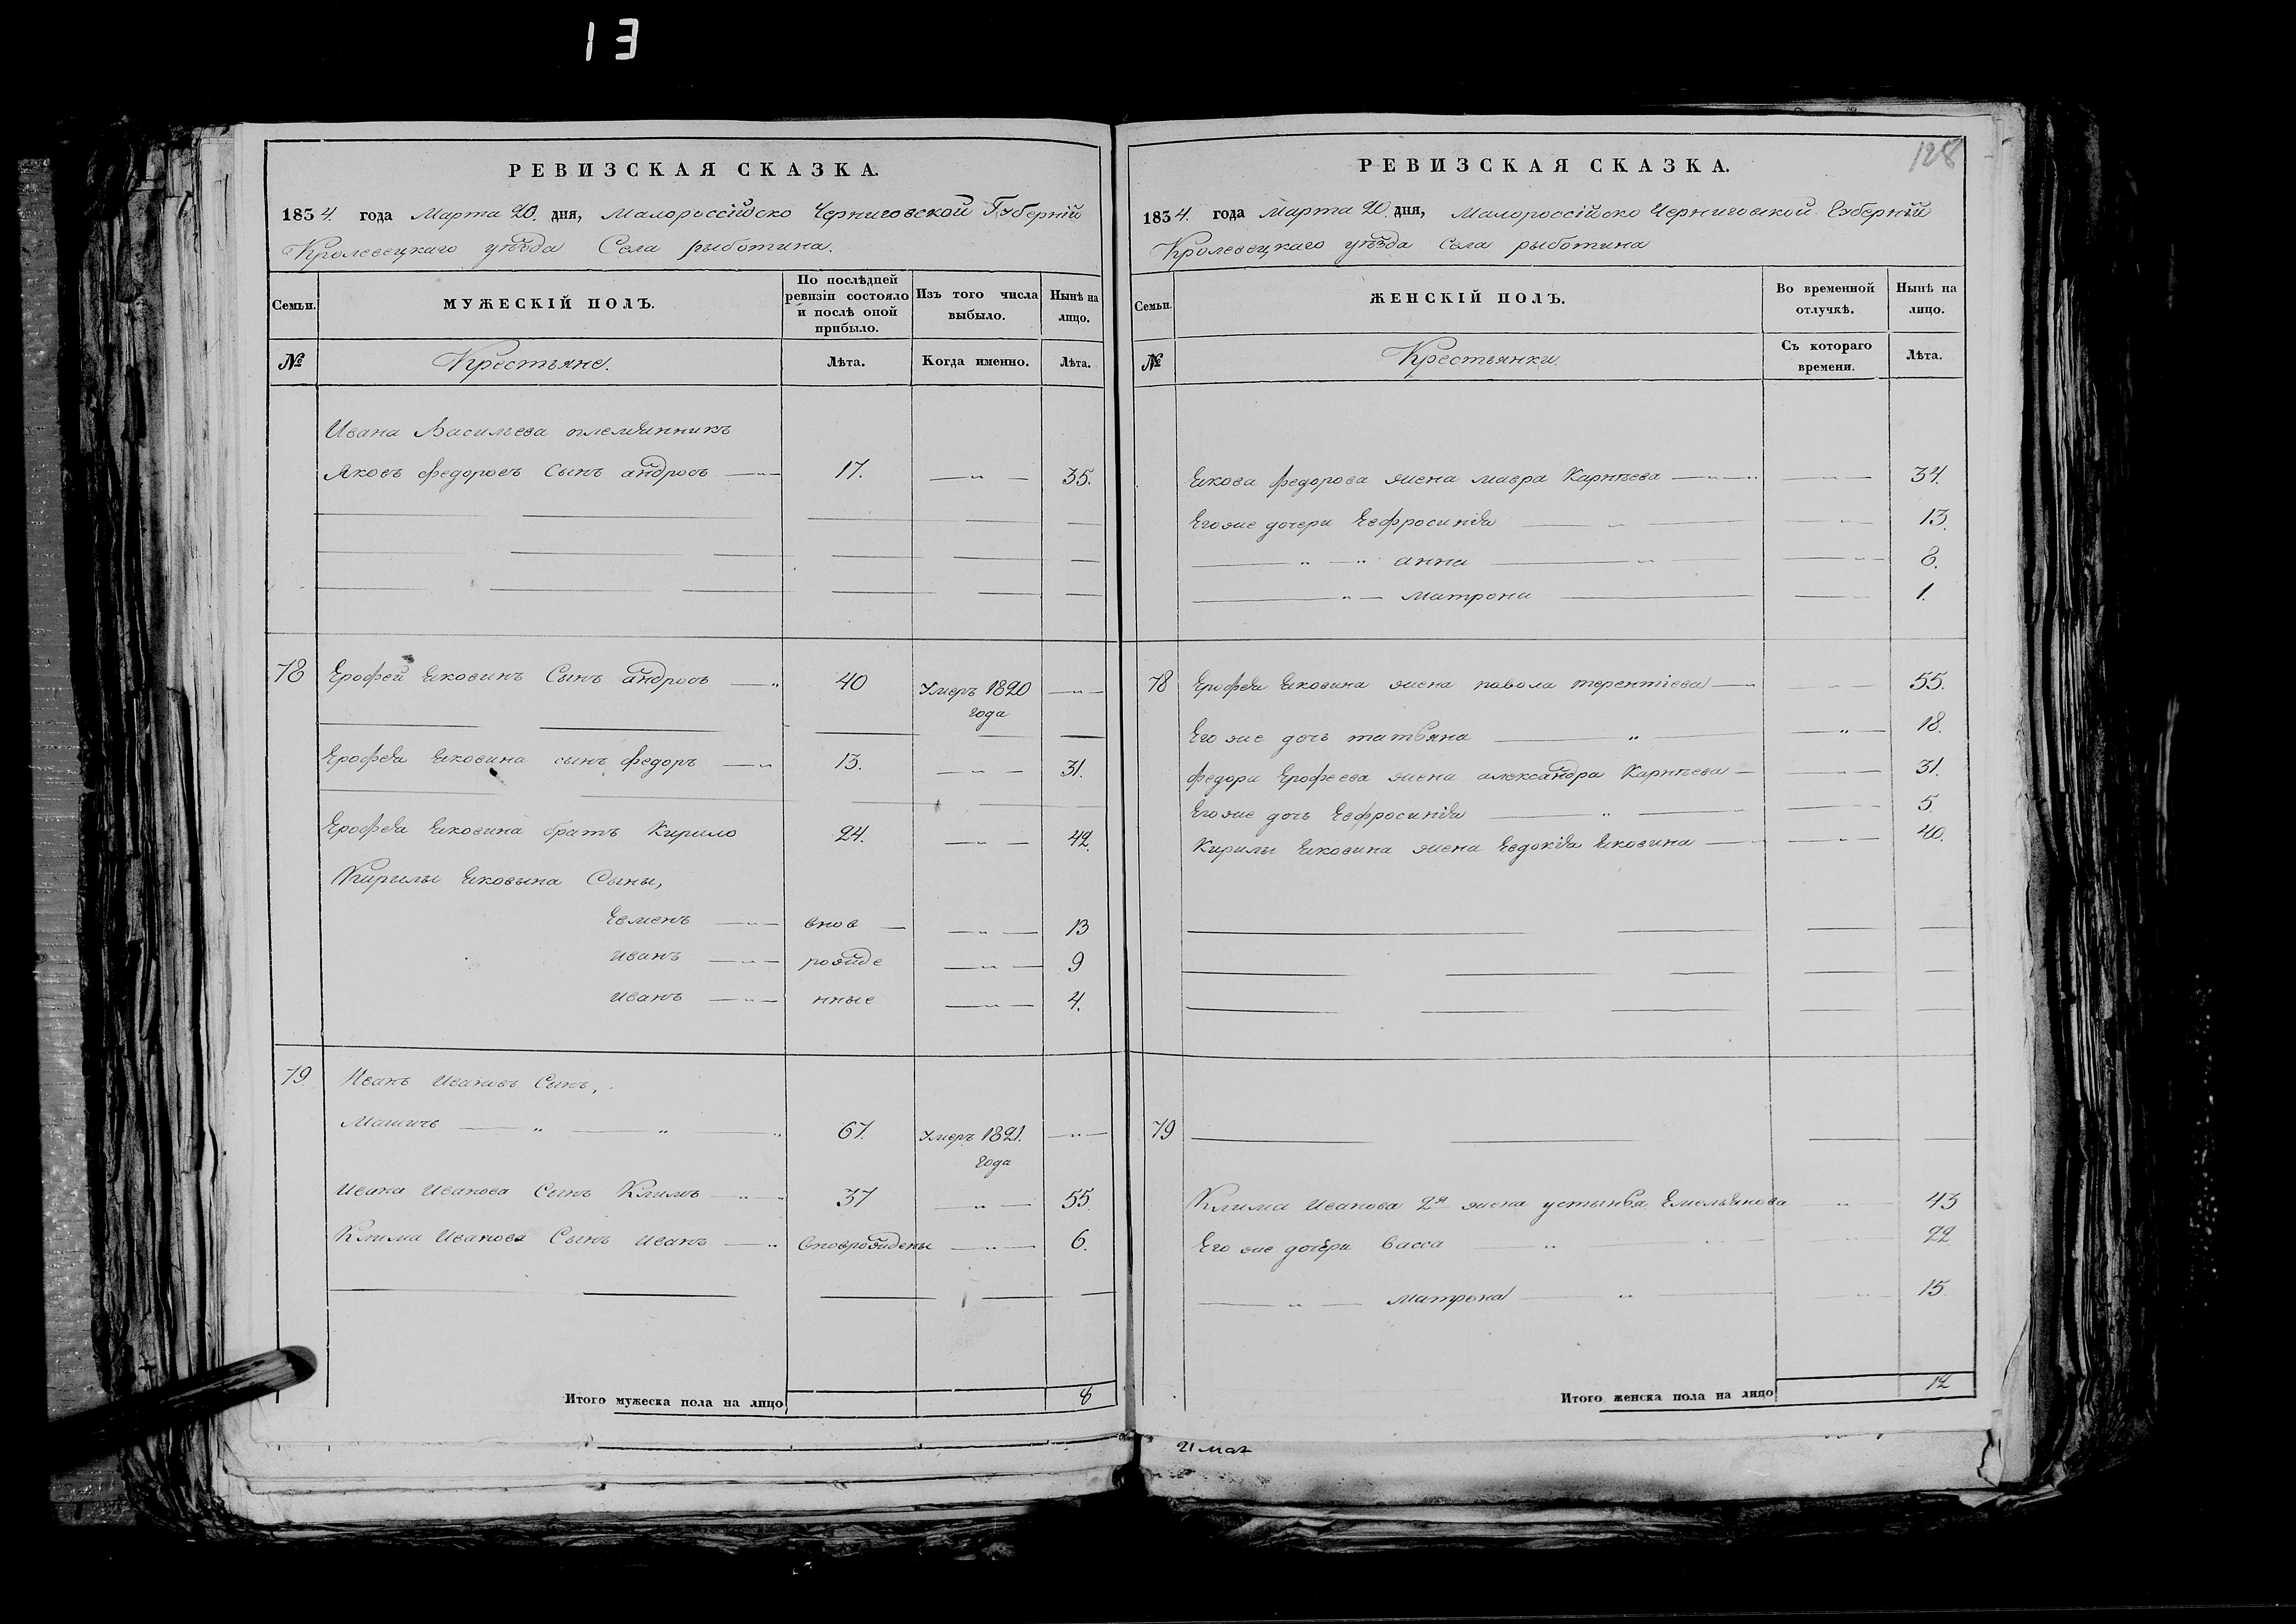 13
РЕВИЗСКАЯ СКАЗКА.
1834. года Марта 20. дня, Малороссійско Черниговской Губерній
Кролевецкаго уѣзда Села рыботина.
Семьи.
МУЖЕСКІЙ ПОЛЪ.
По послѣдней ревизіи состояло и послѣ оной прибыло.
Изъ того числа выбыло.
Нынѣ на лицо.
№
Крестьяне.
Лѣта.
Когда именно.
Лѣта.
Ивана Васильева племянникъ
Яковъ федоровъ Сынъ андросъ 17. 35.
78 Ерофей Яковинъ Сынъ андросъ 40 Умеръ 1820 года
Ерофея Яковина сынъ федоръ 13. 31.
Ерофея Яковина братъ Кирило 24. 42.
Кирилы Яковина Сыны,
Семенъ внов 13
иванъ рожде 9
иванъ нные 4.
79 Иванъ Ивановъ Сынъ,
67. Умеръ 1821. года
Ивана Иванова Сынъ Климъ 37 55.
Клима Иванова Сынъ иванъ вноврождены 6.
Итого мужеска пола на лицо 8
128
РЕВИЗСКАЯ СКАЗКА.
1834. года Марта 20. дня, Малороссійско Черниговской Губерній
Кролевецкаго уѣзда Села рыботина
Семьи.
ЖЕНСКІЙ ПОЛЪ.
Во временной отлучкѣ.
Нынѣ на лицо.
№
Крестьянки.
Съ котораго времени.
Лѣта.
Якова федорова жена мавра Карпѣева 34.
Его же дочери Евфросинія 13.
анна 8.
матрона 1.
78 Ерофея Яковина жена павола терентіева 55.
Его же дочь татьяна 18.
федора Ерофеева жена александра Карпѣева 31.
Его же дочь Евфросинія 5
Кирилы Яковина жена Евдокія Яковина 40.
79
Клима Иванова 2я жена устинья Емельянова 43
Его же дочери Васса 22
матрона 15.
Итого женска пола на лицо 12